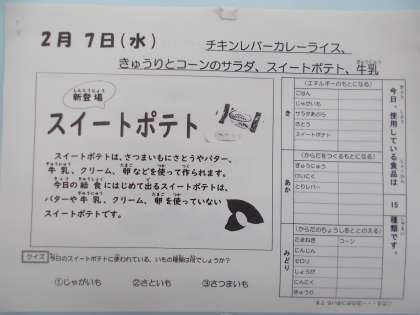 2月 7日(水)
チキンレバーカレーライス、
きゅうりとコーンのサラダ、スイートポテト、牛乳
新登場
スイートポテト
スイートポテトは、さつまいもにさとうやバター、
牛乳、クリーム、卵などを使って作られます。
今日の給食にはじめて出るスイートポテトは、
バターや牛乳、クリーム、卵を使っていない
スイートポテトです。
クイズ 今日のスイートポテトに使われている、いもの種類は何でしょうか?
①じゃがいも ②さといも ③さつまいも
今日、使用している食品は 15 種類です。
き
(エネルギーのもとになる)
ごはん
じゃがいも
サラダあぶら
さとう
スイートポテト
あか
(からだをつくるもとになる)
ぎゅうにゅう
とりレバー
みどり
(からだのちょうしをととのえる)
たまねぎ コーン
にんじん
セロリ
しょうが
にんにく
きゅうり